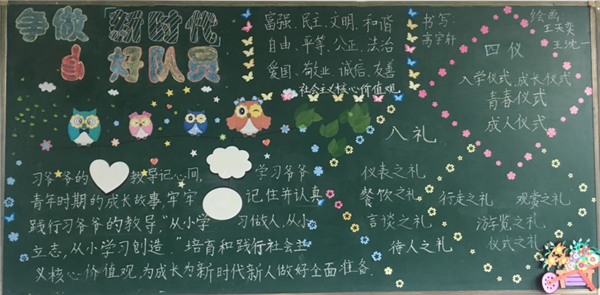 争做「新时代
好队员
富强、民主、文明、和谐
自由、平等、公正、法治
爱国、敬业、诚信、友善
社会主义核心价值观
书写:
高宇轩
绘画:
王天奕
王沈一
四仪
入学仪式、成长仪式
青春仪式
成人仪式
入礼
仪表之礼
餐饮之礼 行走之礼 观赏之礼
言谈之礼 游览之礼
待人之礼 仪式之礼
习爷爷的 教导记心间, 学习爷爷
青年时期的成长故事,牢牢 记住并认真
践行习爷爷的教导,“从小学 习做人,从小
立志,从小学习创造。”培育和践行社会主
义核心价值观,为成长为新时代新人做好全面准备.